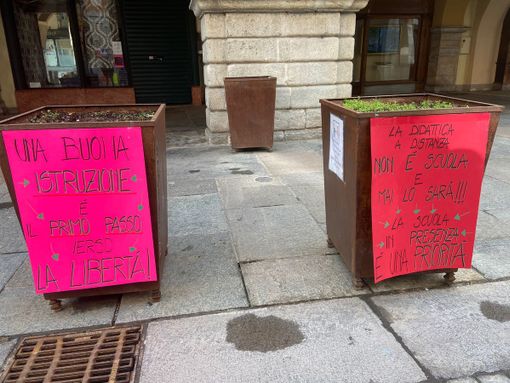 UNA BUONA
ISTRUZIONE
È
IL PRIMO PASSO
VERSO
LA LIBERTÀ!
LA DIDATTICA A
DISTANZA
NON È SCUOLA
E
MAI LO SARÀ!!!
LA SCUOLA
IN PRESENZA
È UNA PRIORITÀ